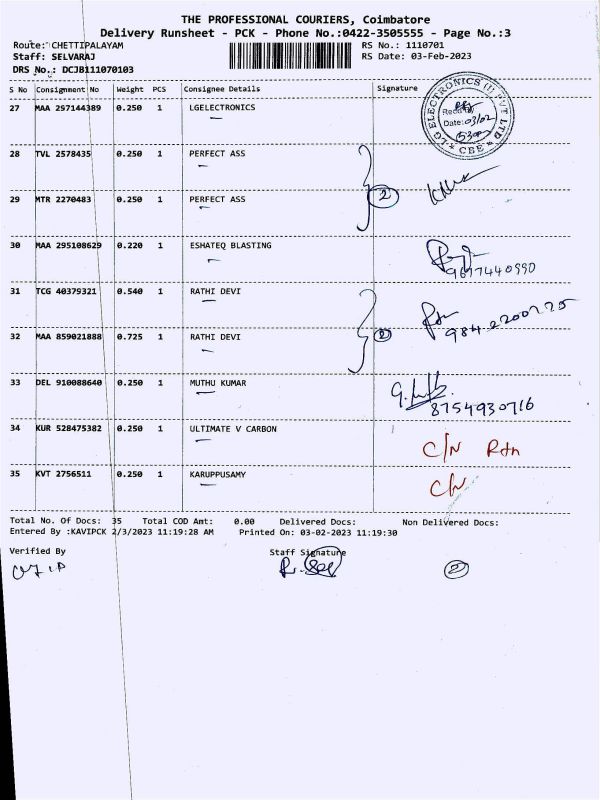 THE PROFESSIONAL COURIERS, Coimbatore
Delivery Runsheet - PCK - Phone No.:0422-3505555 - Page No.:3
Route: CHETTIPALAYAM
RS No.: 1110701
Staff: SELVARAJ
RS Date: 03-Feb-2023
DRS No.: DCJB111070103
S No Consignment No Weight PCS Consignee Details Signature
27 MAA 297144389 0.250 1 LGELECTRONICS
LG ELECTRONICS (I) PVT LTD
Date: 03/02
530pm
* CBE *
28 TVL 2578435 0.250 1 PERFECT ASS
2
29 MTR 2270483 0.250 1 PERFECT ASS
30 MAA 295108629 0.220 1 ESHATEQ BLASTING
9617440990
31 TCG 40379321 0.540 1 RATHI DEVI
2
32 MAA 859021888 0.725 1 RATHI DEVI
33 DEL 910088640 0.250 1 MUTHU KUMAR
8754930716
34 KUR 528475382 0.250 1 ULTIMATE V CARBON
C/N Rtn
35 KVT 2756511 0.250 1 KARUPPUSAMY
C/N
Total No. Of Docs: 35 Total COD Amt: 0.00 Delivered Docs: Non Delivered Docs:
Entered By :KAVIPCK 2/3/2023 11:19:28 AM Printed On: 03-02-2023 11:19:30
Verified By Staff Signature
2